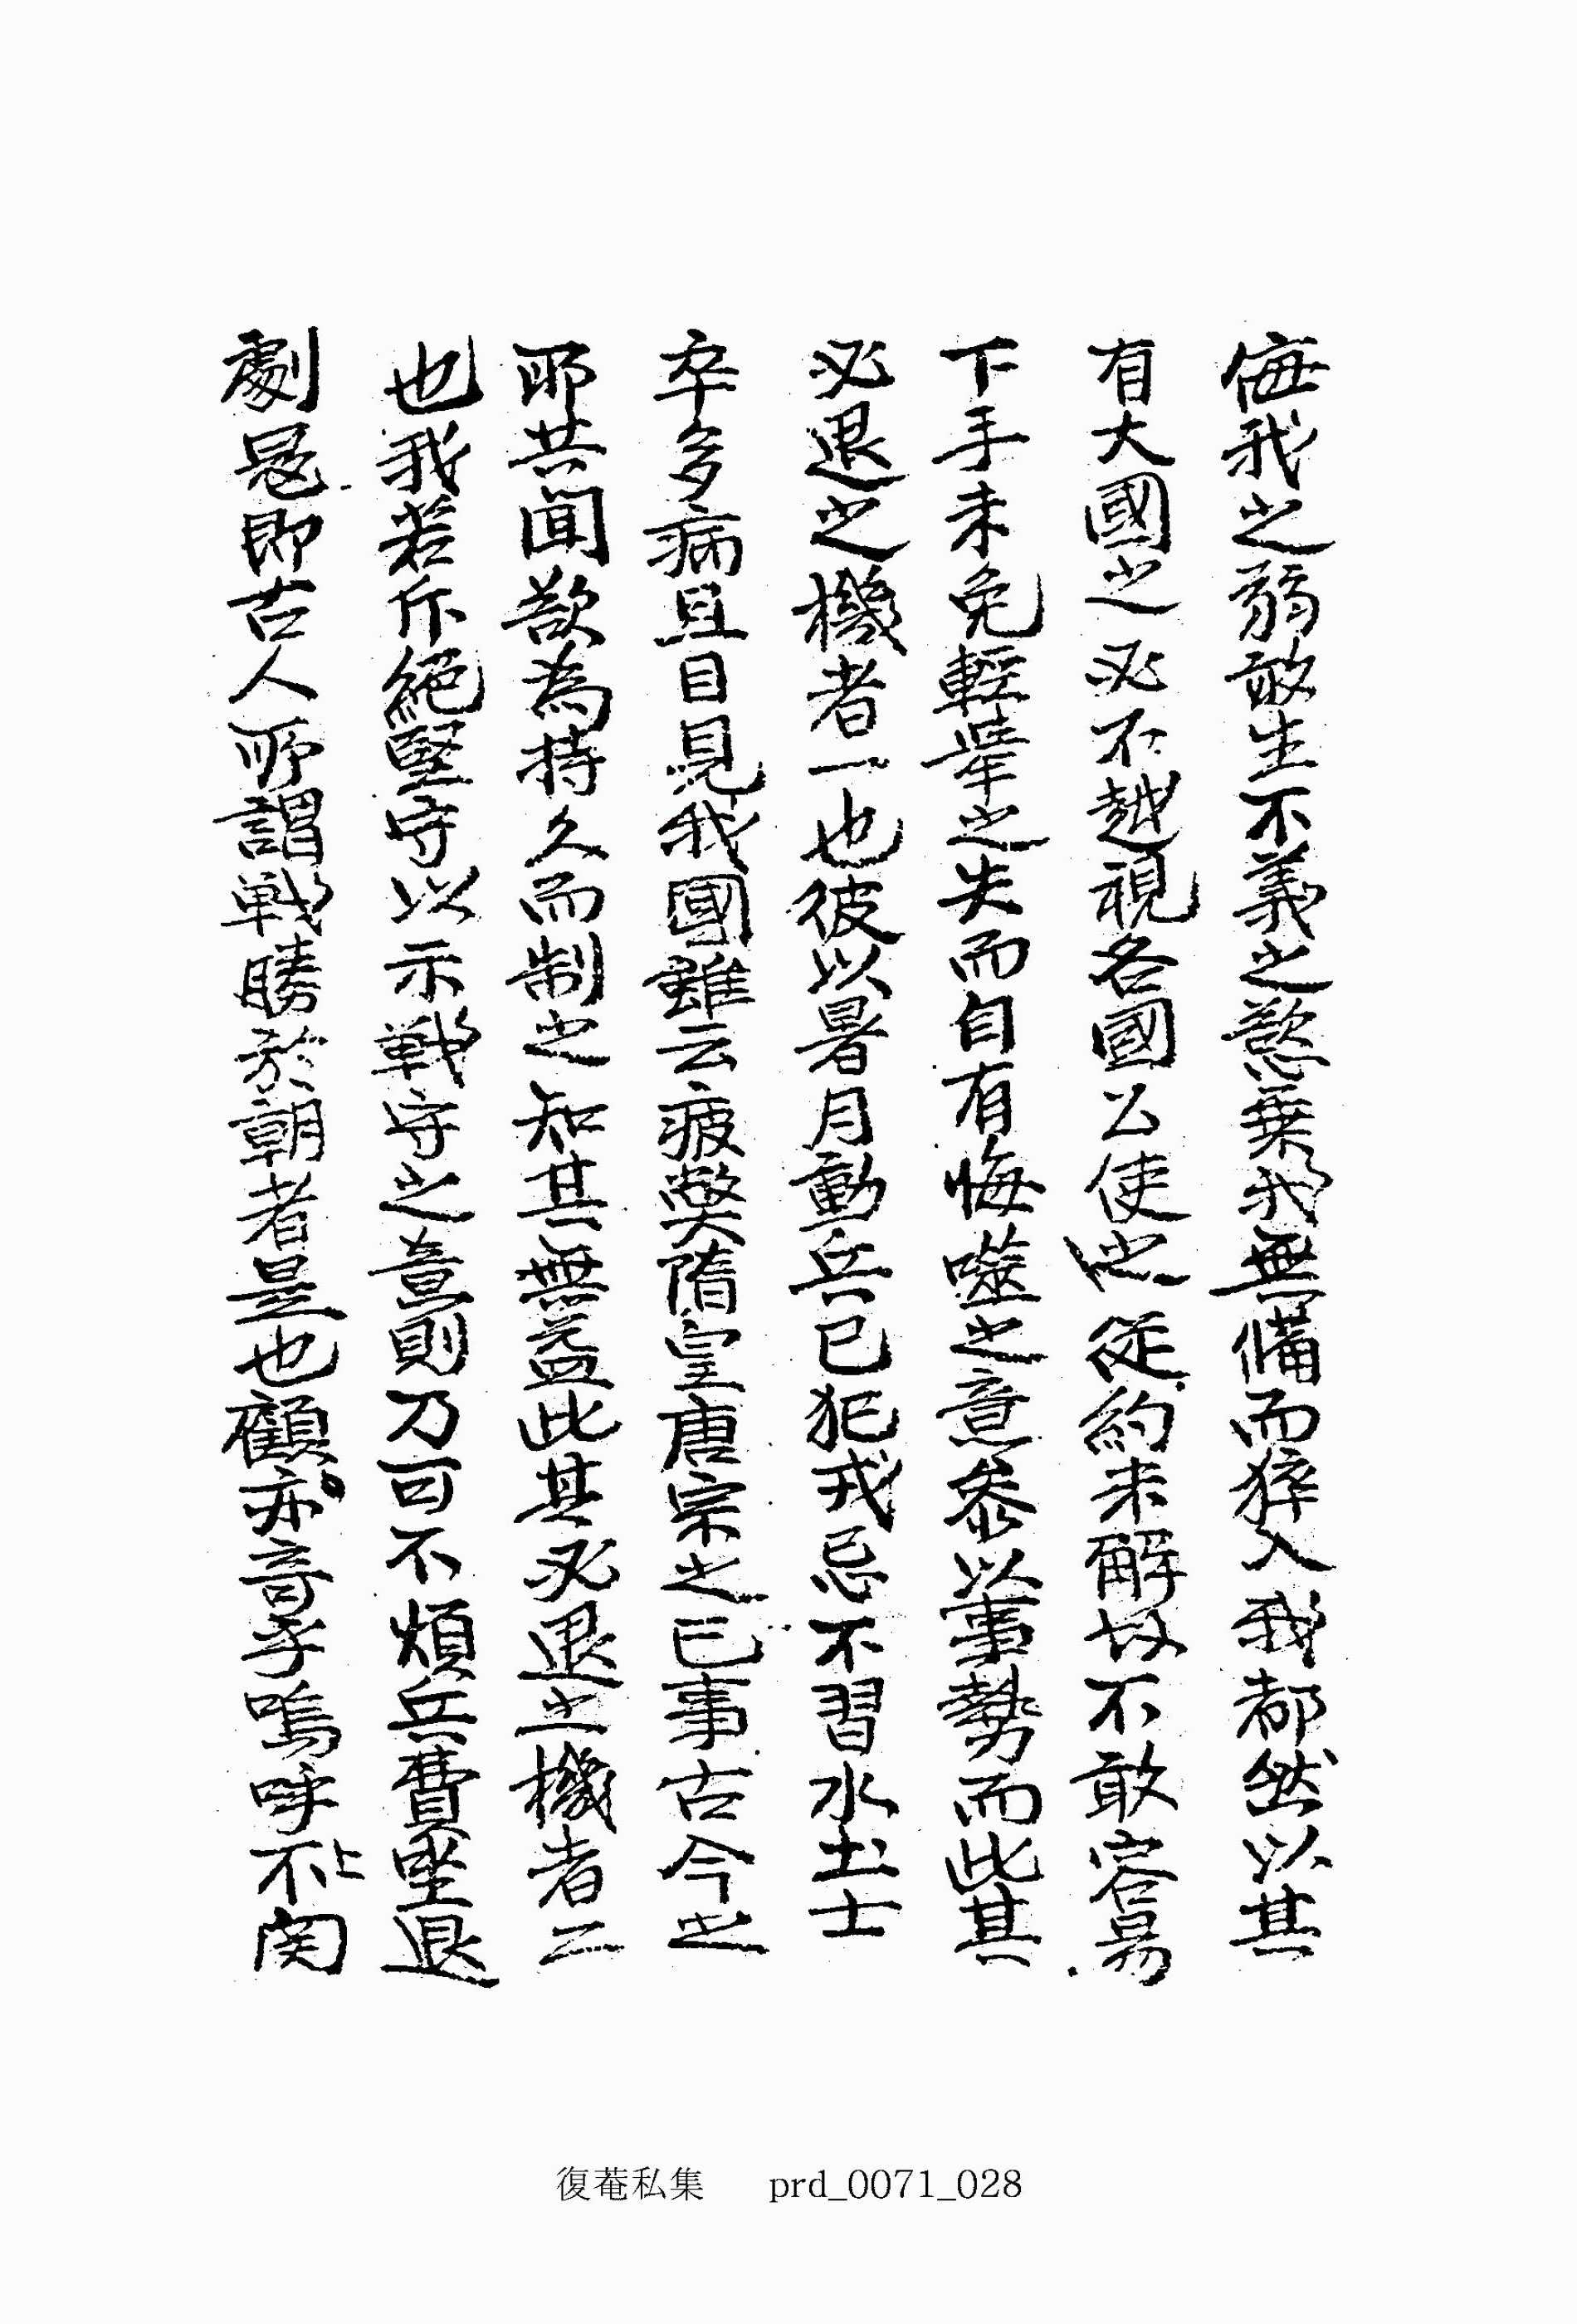 侮我之弱敢生不義之慾乗我無備而猝入我都然以其
有大國之必不越視各國公使之從約未解故不敢容易
下手未免輕擧之失而自有悔噬之意參以事勢而此其
必退之機者一也彼以暑月動兵已犯戎忌不習水土士
卒多病且目見我國雖云疲獘隋皇唐宗之已事古今之
所共聞欲為持久而制之知其無益此其必退之機者二
也我若斥絕堅守以示戰守之意則乃可不煩兵費坐退
劇是即古人所謂戰勝於朝者是也顧亦奇乎嗚呼不上関
復菴私集 prd_0071_028